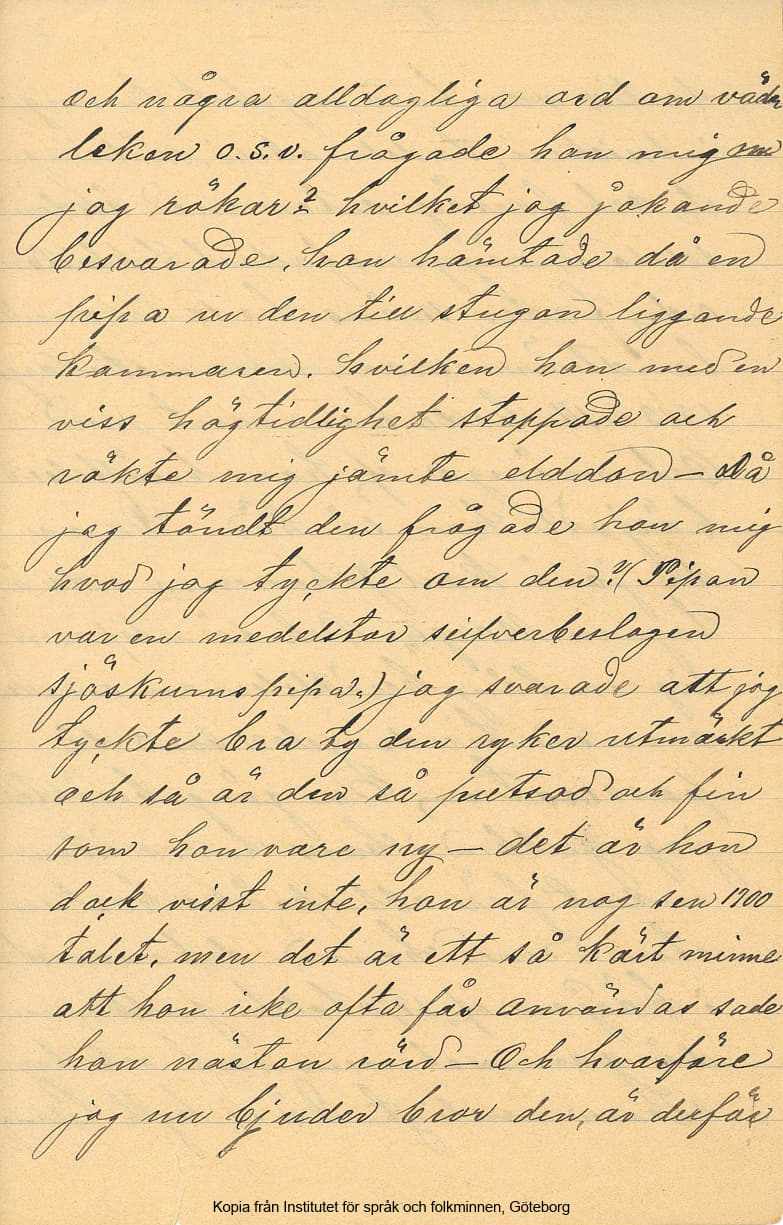 och några alldagliga ord om väder
leken o.s.v. frågade han mig om
jag rökar? hvilket jag jakande
besvarade. han hämtade då en
pipa ur den till stugan liggande
kammaren. hvilken han med en
viss högtidlighet stoppade och
räkte mig jämte elddon — då
jag tändt den frågade han mig
hvad jag tyckte om den? (Pipan
var en medelstor silfverbeslagen
sjöskumspipa.) jag svarade att jag
tyckte bra ty den ryker utmärkt
och så är den så putsad och fin
som hon vare ny — det är hon
dock visst inte, hon är nog sen 1700
talet. men det är ett så kärt minne
att hon icke ofta får användas sade
han nästan rörd — Och hvarföre
jag nu bjuder bror den, är derför
Kopia från Institutet för språk och folkminnen, Göteborg